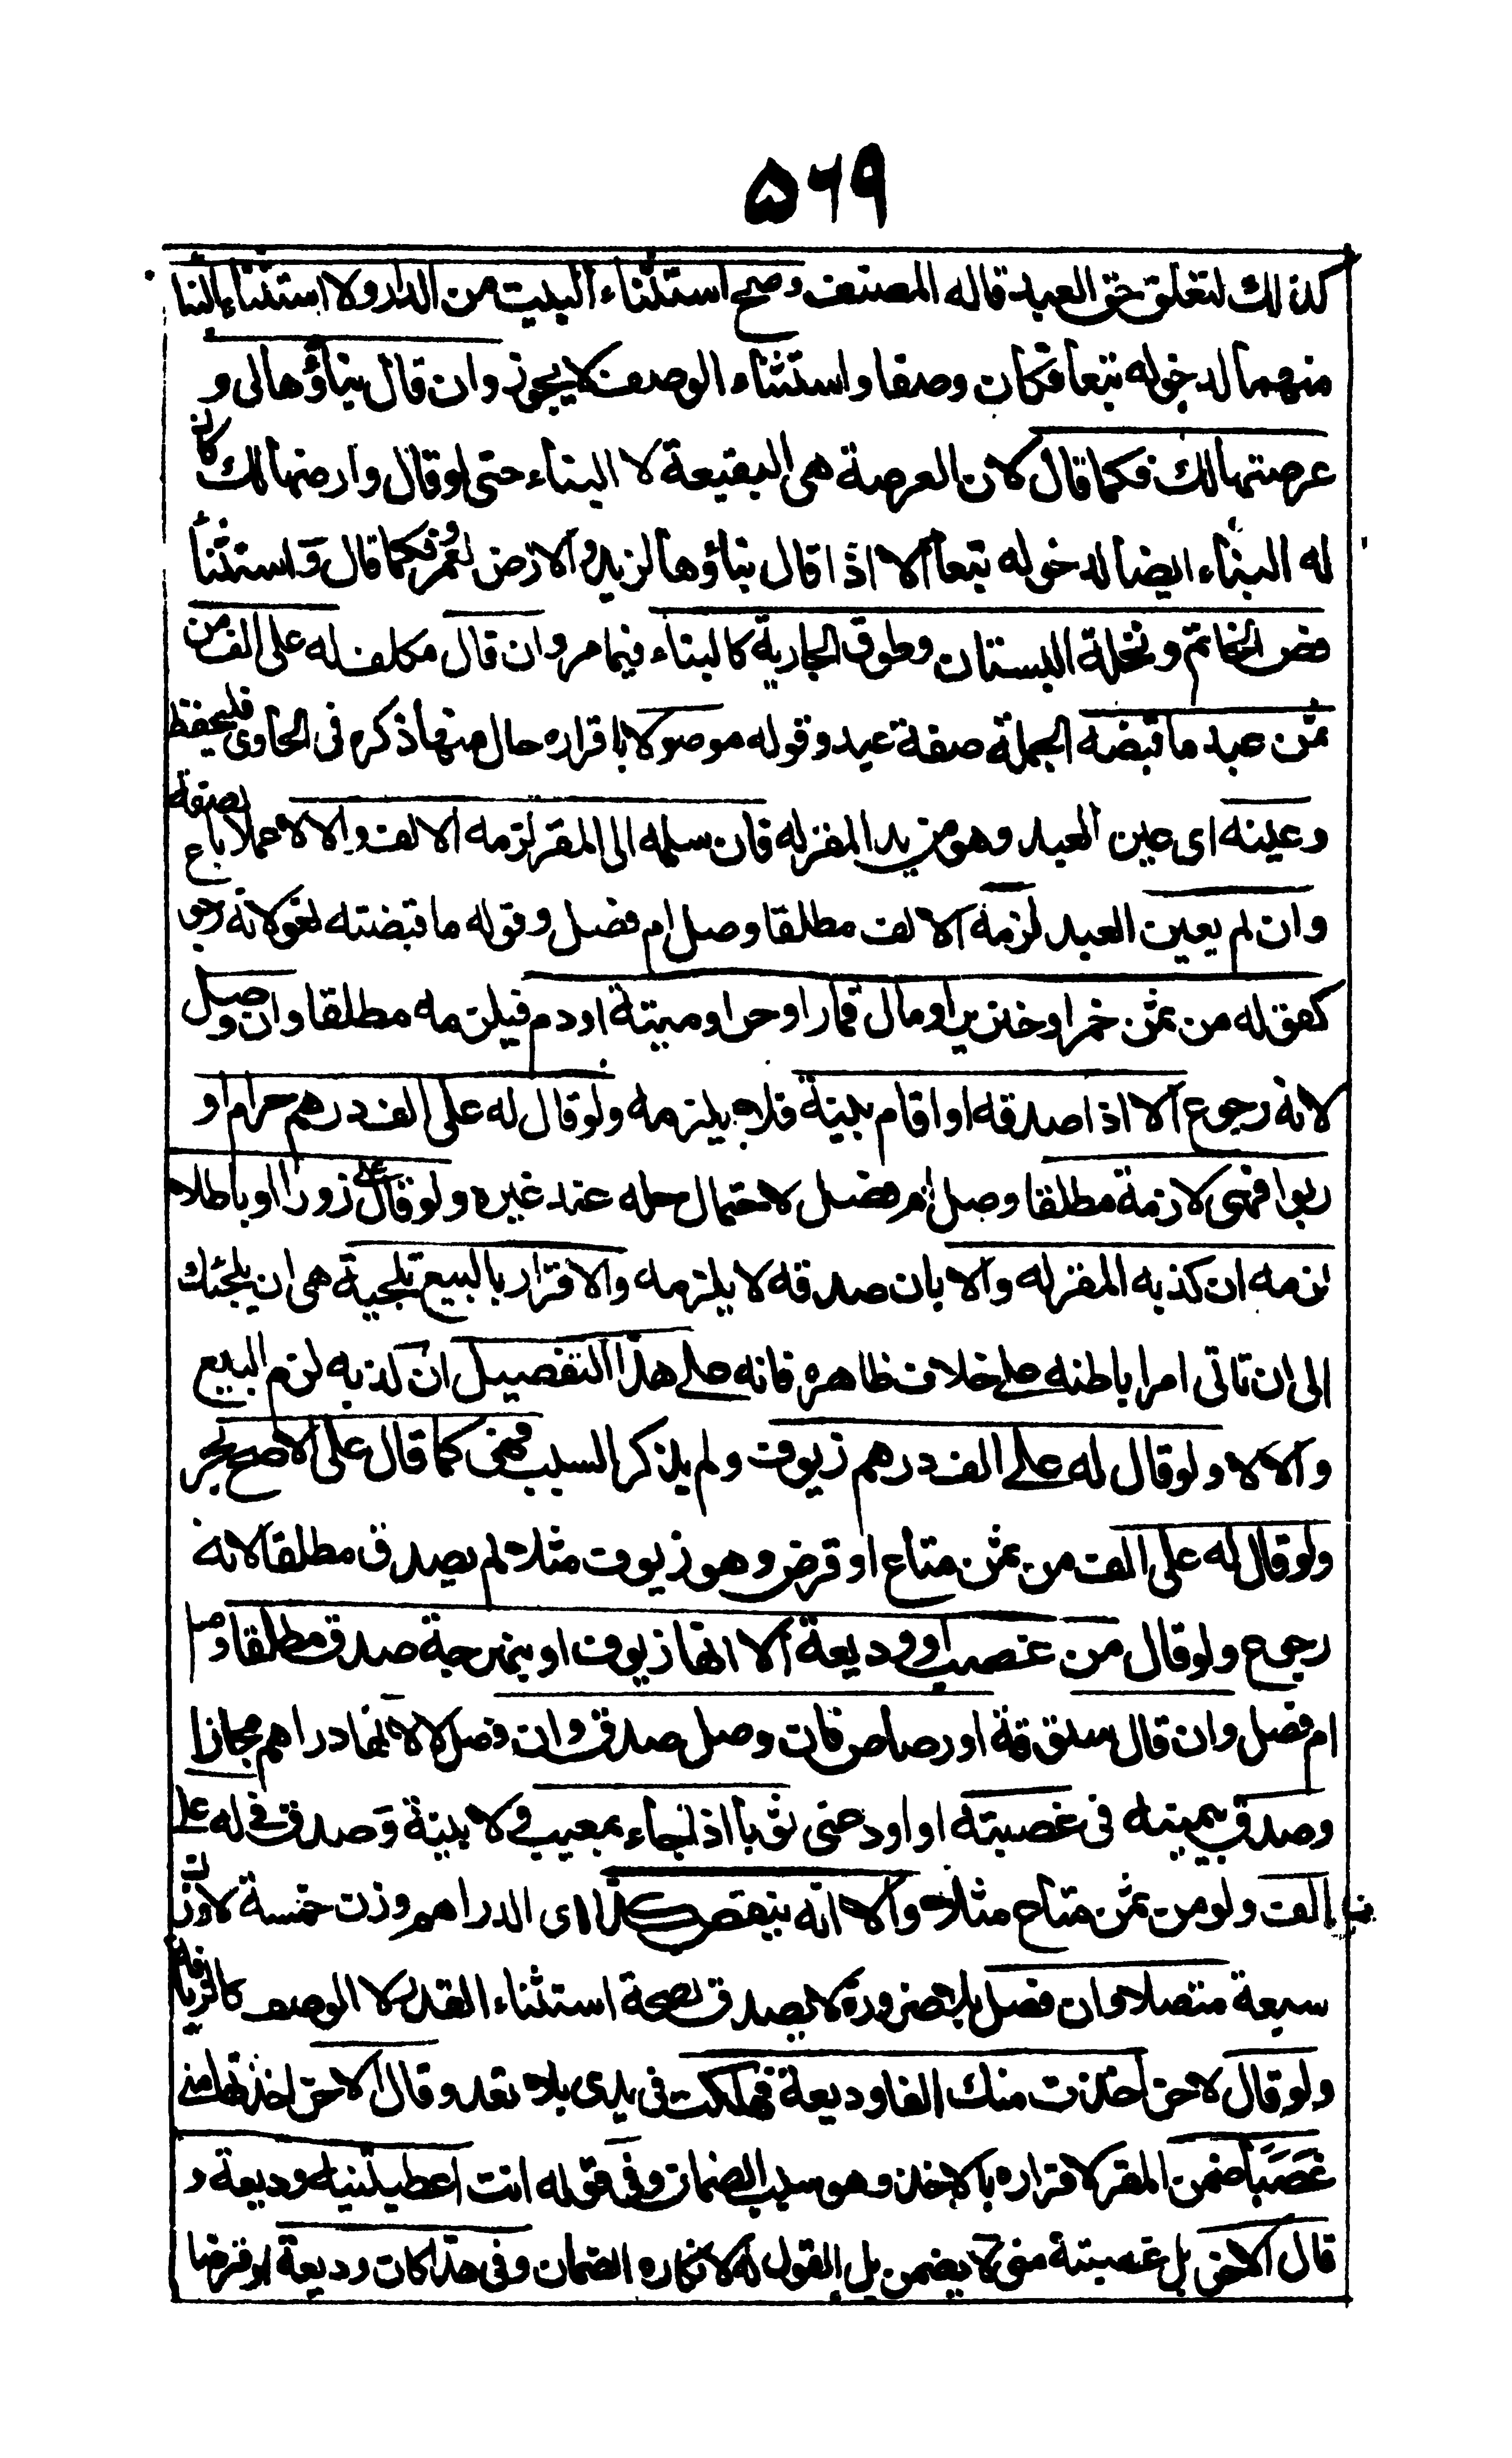 ۵۶۹
كذلك لتعلق حق العبد قاله المصنف وصح استثناء البيت من الدار ولا استثناء البنا
منهما لدخوله تبعا فكان وصفا واستثناء الوصف لا يجوز وان قال بناؤها لى و
عرصتها لك فكما قال لان العرصة هى البقيعة لا البناء حتى لو قال وارضها لك كان
له البناء ايضا لدخوله تبعا الا اذا قال بناؤها لزيد والارض لعمر فكما قال و استثنا
فص الخاتم ونخلة البستان وطوق الجارية كالبناء فيما مر وان قال مكلف له على الف من
ثمن عبد ما قبضه الجملة صفة عبد وقوله موصولا باقراره حال منها ذكره فى الحاوى فليحفظ
وعينه اى عين العبد وهو من يد المقر له فان سلمه الى المقر لزمه الالف والا لا عملا بصفقة باع
وان لم يعين العبد لزمه الالف مطلقا وصل ام فصل وقوله ما قبضته لغو لانه رجو
كقوله من ثمن خمر او خنزير او مال قمار او حر او ميتة او دم فيلزمه مطلقا وان وصل
لانه رجوع الا اذا صدقه او اقام بينة فلا يلزمه ولو قال له على الف درهم حرام او
ربوا فهى لازمة مطلقا وصل ام فصل لاحتمال حله عند غيره ولو قال على زورا او باطلا
لزمه ان كذبه المقر له والا بان صدقه لا يلزمه والاقرار بالبيع تلجية هى ان يلجئك
الى ان تاتى امرا باطنه على خلاف ظاهره فانه على هذا التفصيل ان كذبه لزم البيع
والا لا ولو قال له على الف درهم زيوف ولم يذكر السبب فهى كما قال على الاصح بحر
ولو قال له على الف من ثمن متاع او قرض وهو زيوف مثلا لم يصدق مطلقا لانه
رجوع ولو قال من غصب او وديعة الا انها زيوف او نبهرجة صدق مطلقا وصل
ام فصل وان قال ستوقة او رصاص فان وصل صدق وان فصل لا لانها دراهم مجازا
وصدق بيمينه فى غصبته او اودعنى ثوبا اذا جاء بمعيب ولا بينة وصدق فى له على
الف ولو من ثمن متاع مثلا والا انه ينقص كذا اى الدراهم وزن خمسة لا وزن
سبعة متصلا وان فصل بلا ضرورة لا يصدق لصحة استثناء القدر لا الوصف كالزيافة
ولو قال لاخر اخذت منك الفا وديعة فهلكت فى يدى بلا تعد وقال الاخر اخذتها منى
غصبا ضمن المقر لاقراره بالاخذ وهو سبب الضمان وفى قوله انت اعطيتنيه وديعة و
قال الاخر بل غصبته منى لا يضمن بل القول له لانكاره الضمان وفى هذا كان وديعة او قرضا